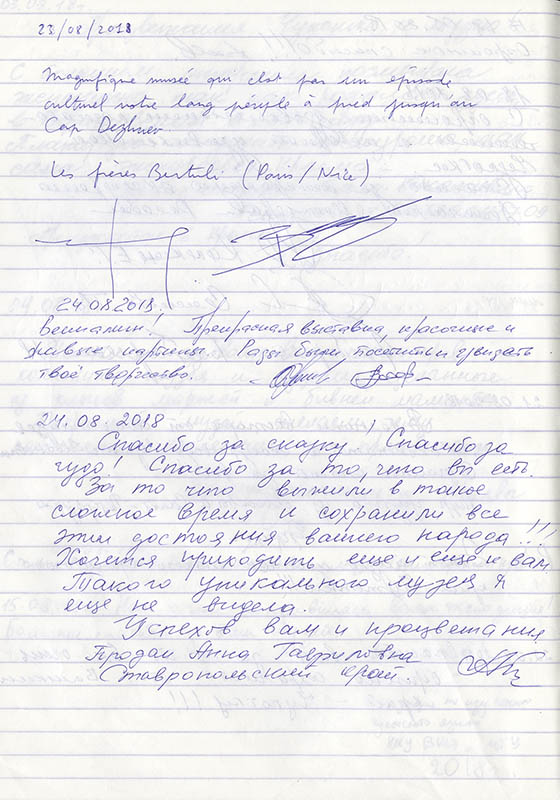 23/08/2018
Magnifique musée qui clot par un épisode
culturel notre long périple à pied jusqu'au
Cap Dezhnev.
Les frères Bertuli (Paris/Nice)
24 08 2018
Вениамин! Прекрасная выставка, красочные и
живые картины. Рады были посетить и увидеть
твоё творчество.
24.08.2018
Спасибо за сказку! Спасибо за
чудо! Спасибо за то, что вы есть.
За то что выжили в такое
сложное время и сохранили все
эти достояния вашего народа!!!
Хочется приходить еще и еще к вам
Такого уникального музея я
еще не видела.
Успехов вам и процветания
Продан Анна Гавриловна
Ставропольский край.